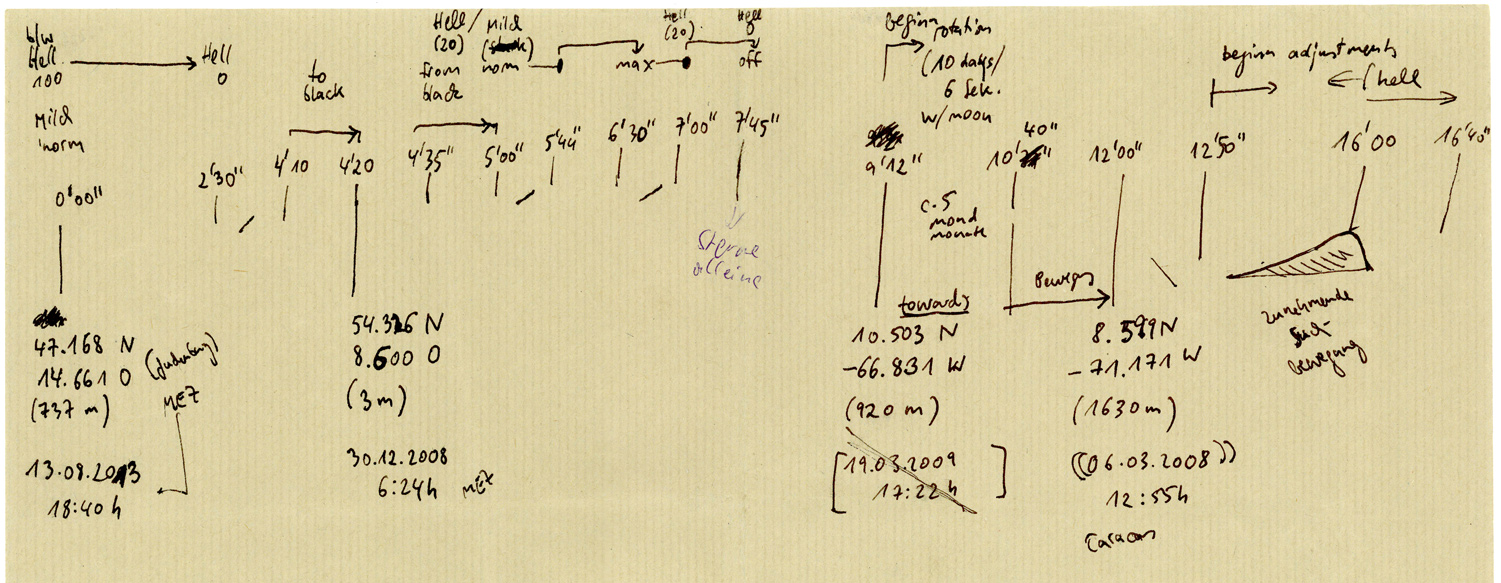 b/w
Hell
100
Hell
0
Mild
norm
to
black
Hell/
(20)
from
black
Mild
norm
max
Hell
(20)
Hell
0
off
begin
rotation
(10 days/
6 Sek.
w/moon
begin adjustments
hell
0'00"
2'30"
4'10
4'20
4'35"
5'00"
5'44"
6'30"
7'00"
7'45"
9'12"
10'40"
12'00"
12'50"
16'00
16'40"
Sterne
alleine
c.5
mond
monate
towards
Beweg
zunehmende
Süd-
bewegung
47.168 N
14.661 O
(Judenburg)
(737 m)
MEZ
13.08.2013
18:40 h
54.326 N
8.600 O
(3m)
30.12.2008
6:24h MEZ
10.503 N
-66.831 W
(920 m)
[19.03.2009
17:22 h]
8.599 N
-71.171 W
(1630m)
((06.03.2008))
12:55h
Caracas